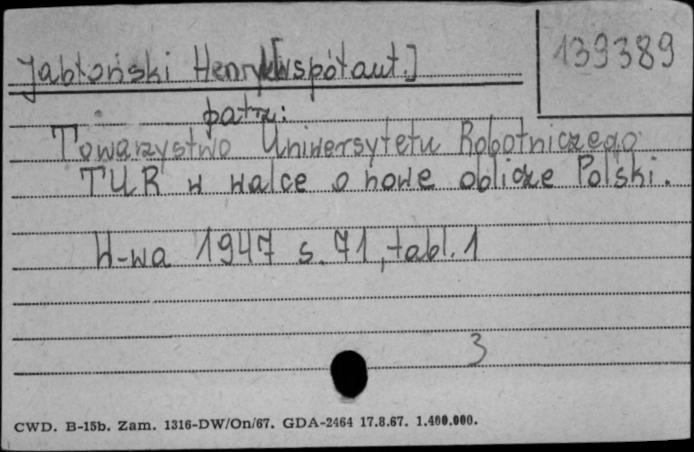 139389
Jabłoński Henryk [współaut.]
patrz:
Towarzystwo Uniwersytetu Robotniczego
TUR w walce o nowe oblicze Polski.
W-wa 1947 s. 71, tabl. 1
3
CWD. B-15b. Zam. 1316-DW/On/67. GDA-2464 17.8.67. 1.400.000.